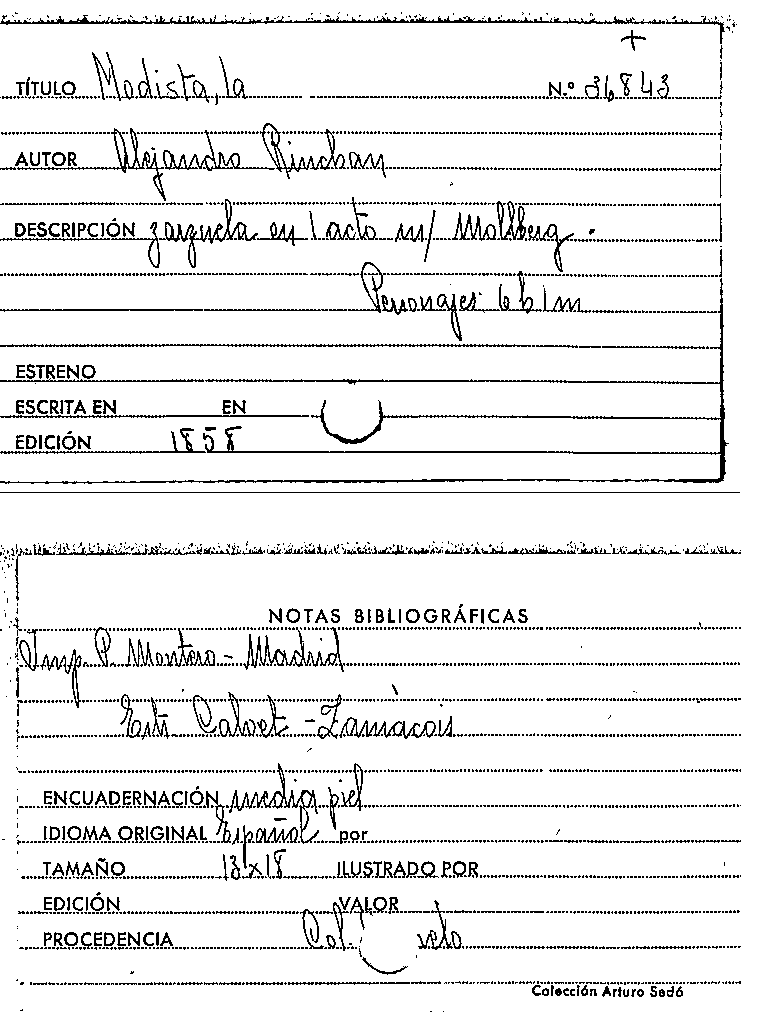 +
TÍTULO Modista, la N.º 36843
AUTOR Alejandro Rinchan
DESCRIPCIÓN zarzuela en 1 acto m/ Mollberg.
Personajes: 6 h 1 m
ESTRENO
ESCRITA EN EN
EDICIÓN 1858
NOTAS BIBLIOGRÁFICAS
Imp. P. Montero - Madrid
Calvet - Zamacois
ENCUADERNACIÓN media piel
IDIOMA ORIGINAL Español por
TAMAÑO 13x18 ILUSTRADO POR
EDICIÓN VALOR
PROCEDENCIA Col.
Colección Arturo Sedó